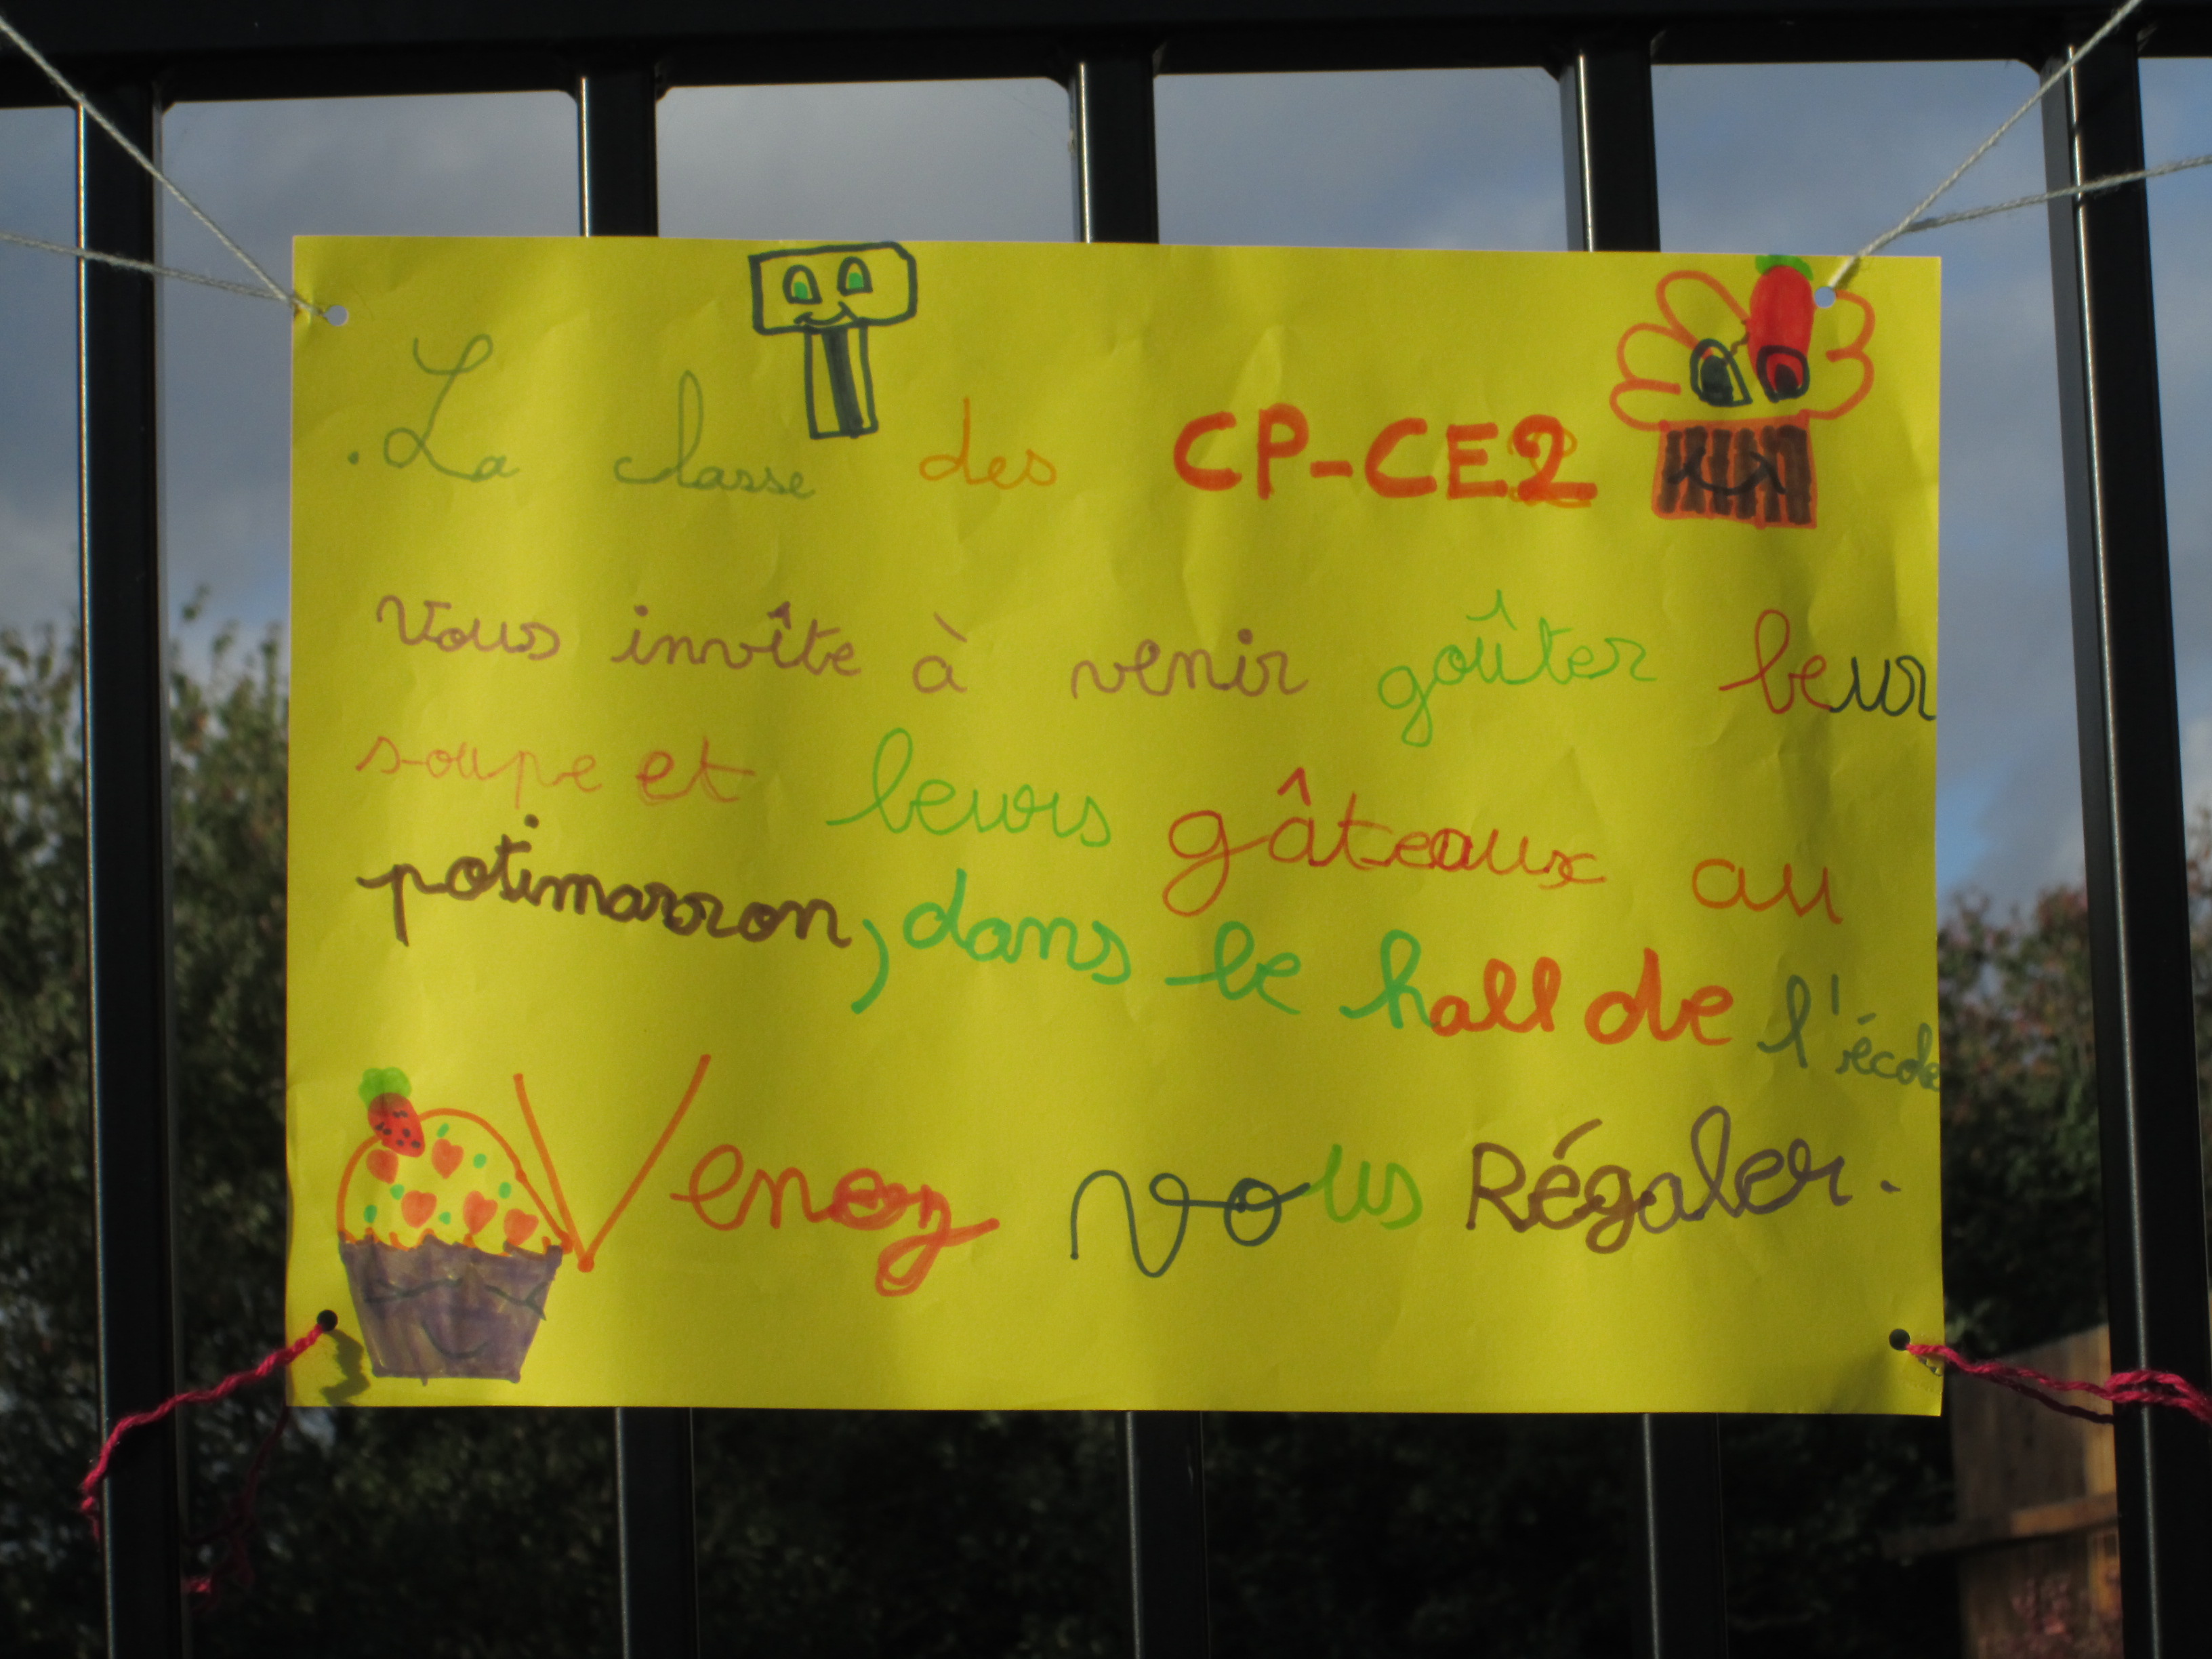 . La classe des CP-CE2
Vous invîte à venir goûter leur
soupe et leurs gâteaux au
potimarron, dans le hall de l'école
Venez vous Régaler.